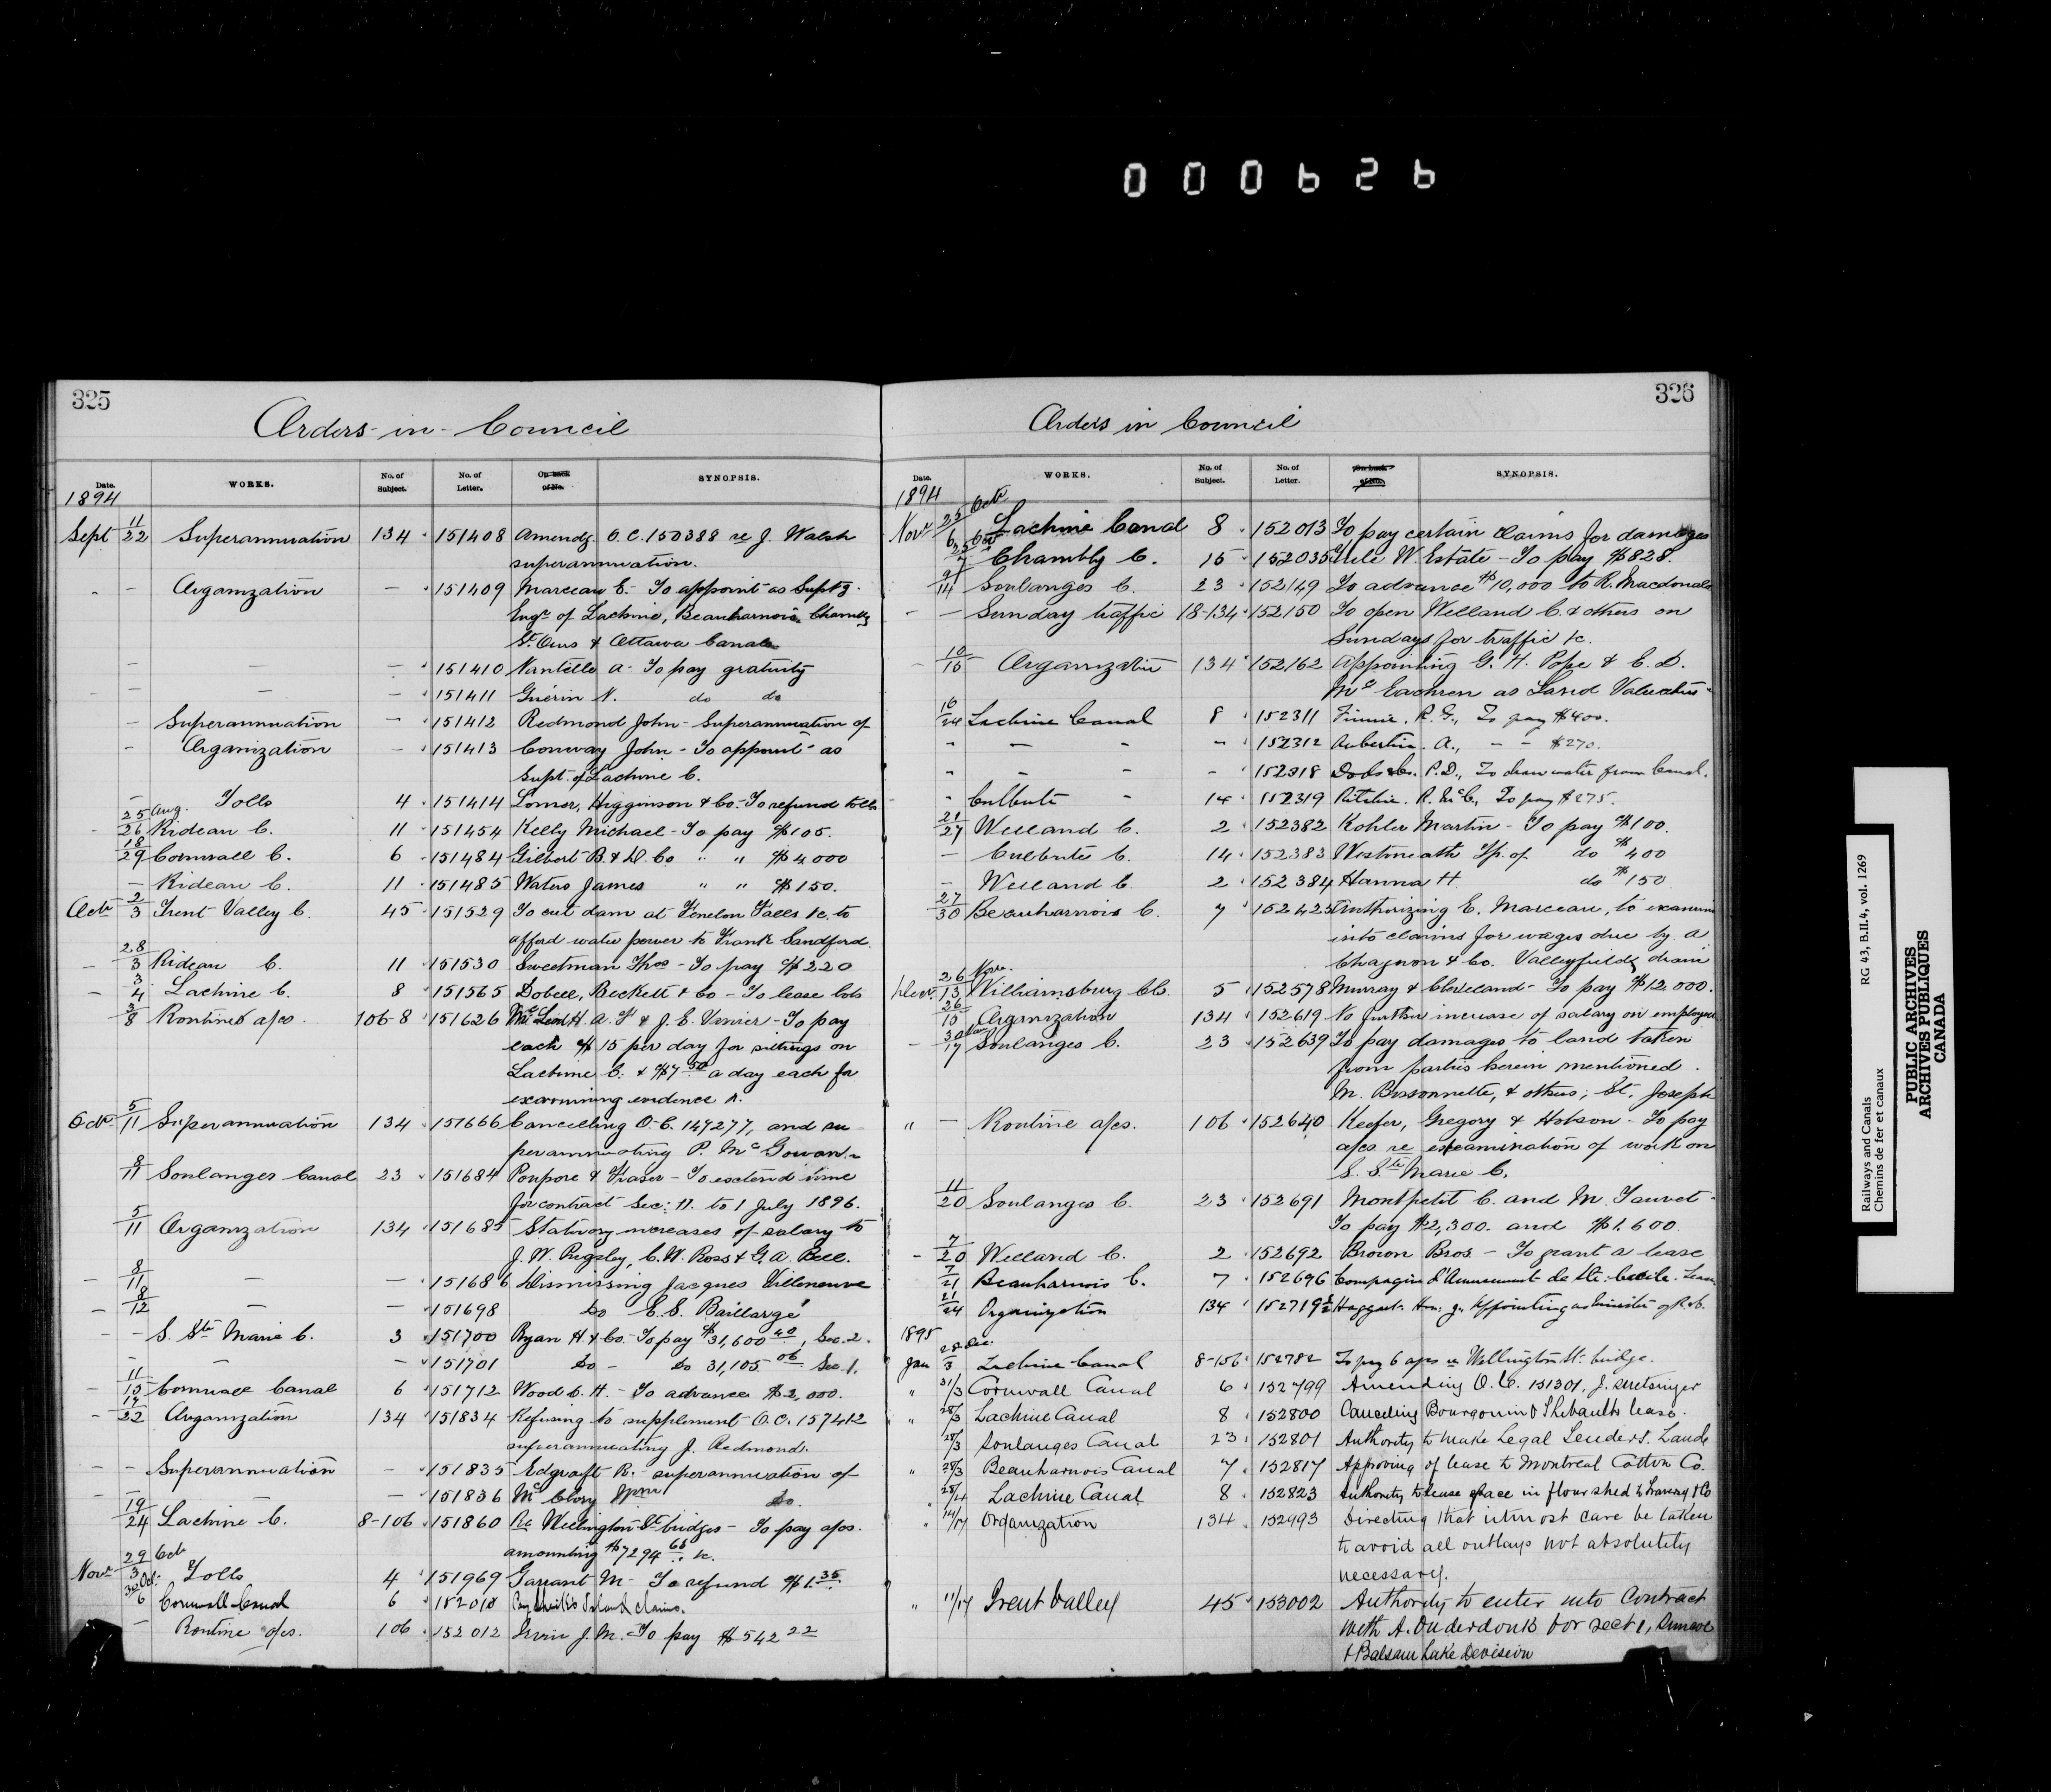 000626
325
Orders-in-Council
Date. WORKS. No. of Subject. No. of Letter. On back of No. SYNOPSIS.
1894
Sept 11/22 Superannuation 134 151408 Amendg. O.C. 150388 re J. Walsh
superannuation.
- - Organization — 151409 Marceau E. - To appoint as Suptg.
Engr. of Lachine, Beauharnois, Chambly
St. Ours & Ottawa Canals
- — — 151410 Nantelle A - To pay gratuity
- - — — 151411 Guérin N. do do
- Superannuation — 151412 Redmond John - Superannuation of
- Organization — 151413 Conway John - To appoint as
Supt. of Lachine C.
- Tolls 4 151414 Lomer, Higginson & Co. - To refund tolls
25 Aug./26 Rideau C. 11 151454 Kelly Michael - To pay $105.
18/29 Cornwall C. 6 151484 Gilbert B. & D. Co " " $4000
— Rideau C. 11 151485 Waters James " " $150.
Octr 2/3 Trent Valley C. 45 151529 To cut dam at Fenelon Falls &c, to
afford water power to Frank Sandford.
28/3 Rideau C. 11 151530 Sweetman Thos - To pay $220
— 3/4 Lachine C. 8 151565 Dobell, Beckett & Co - To lease lots
3/8 Routine a/cs 106-8 151626 H. A. F & J. E. Vanier - To pay
each $15 per day for sittings on
Lachine C. & $7.50 a day each for
examining evidence
Octr 5/11 Superannuation 134 151666 Cancelling O.C. 147277, and su
perannuating P. McGowan.
8/11 Soulanges Canal 23 151684 Poupore & Fraser - To extend time
for contract Sec: 11. to 1 July 1896.
5/11 Organization 134 151685 Statutory increases of salary to
J. W. Pugsley, C. W. Ross & G. A. Bell.
— 8/11 — — 151686 Dismissing Jacques Villeneuve
— 8/12 — — 151698 Do E. S. Baillargé
- - S. Ste Marie C. 3 151700 Ryan H. & Co. - To pay $31,600 40, Sec. 2.
- — — 151701 Do - Do 31,105 06 Sec 1.
— 11/15 Cornwall Canal 6 151712 Wood C. H. - To advance $2,000.
- 17/22 Organization 134 151834 Refusing to supplement O.C. 157412
superannuating J. Redmond.
- - Superannuation — 151835 Edgcraft R. - superannuation of
- — 151836 McClory Do.
19/24 Lachine C. 8-106 151860 Re Wellington St. bridges - To pay a/cs.
amounting $7294 &c.
Novr 29 Oct/3 Tolls 4 151969 Garrant M - To refund $1.35
30 Oct/6 Cornwall Canal 6 152010 Pay Sheik's Island claims.
— Routine a/cs. 106 152012 Irwin J. M. - To pay $542 22
326
Orders in Council
Date. WORKS. No. of Subject. No. of Letter. On back of No. SYNOPSIS.
1894
Novr 25 Octr/6 Lachine Canal 8 152013 To pay certain claims for damages
25 Oct/7 Chambly C. 15 152035 Yule W. Estate - To pay $828.
9/14 Soulanges C. 23 152149 To advance $10,000 to R. Macdonald
- — Sunday traffic 18-134 152150 To open Welland C. & others on
Sundays for traffic &c.
- 10/15 Organization 134 152162 Appointing G. H. Pope & E. D.
McEachren as Land Valuators
16/24 Lachine Canal 8 152311 Finnie. R. G., To pay $400.
- — - - 152312 Aubertin. A., - - $270.
- — - - 152318 Dods & Co. P. D., To draw water from Canal.
- Culbute - 14 152319 Ritchie. R. McC., To pay $275.
21/27 Welland C. 2 152382 Kohler Martin - To pay $100.
— Culbute C. 14 152383 Westmeath Tp. of do $400
— Welland C. 2 152384 Hanna H. do $150
27/30 Beauharnois C. 7 152425 Authorizing E. Marceau, to examine
into claims for wages due by A
Chagnon & Co. Valleyfield, drain
Decr. 26 Nov./13 Williamsburg Cls. 5 152578 Murray & Cleveland - To pay $12000.
26/15 Organization 134 152619 No further increase of salary on employees
— 30/17 Soulanges C. 23 152639 To pay damages to land taken
from parties herein mentioned.
M. Bissonnette, & others; St. Joseph
" — Routine a/cs. 106 152640 Keefer, Gregory & Hobson - To pay
a/cs re examination of work on
S. Ste Marie C.
11/20 Soulanges C. 23 152691 Montpetit C. and M. Sauvet -
To pay $2,300. and $1,600.
- 7/20 Welland C. 2 152692 Brown Bros. - To grant a lease
7/21 Beauharnois C. 7 152696 Compagnie d'Amusement de Ste. Cecile. Lease
21/24 Organization 134 152719½ Haggart Hon: J. Appointing as Minister of R. & C.
1895
Jan 28 Dec:/3 Lachine Canal 8-106 152782 To pay 6 a/cs re Wellington St. bridge.
" 31/3 Cornwall Canal 6 152799 Amending O.C. 151301,
" 28/3 Lachine Canal 8 152800 Canceling Bourgouin & Thibaults lease.
28/3 Soulanges Canal 23 152801 Authority to make Legal Tenders. Lands
" 28/3 Beauharnois Canal 7 152817 Approving of lease to Montreal Cotton Co.
" 28/4 Lachine Canal 8 152823 Authority to lease space in flour shed to & Co
" 14/17 Organization 134 152993 Directing that utmost care be taken
to avoid all outlays not absolutely
necessary.
" 11/17 Trent Valley 45 153002 Authority to enter into Contract
with A. Onderdonk for sect 1, Simcoe
& Balsam Lake Devision
Railways and Canals RG 43, B.II.4, vol. 1269
Chemins de fer et canaux
PUBLIC ARCHIVES
ARCHIVES PUBLIQUES
CANADA